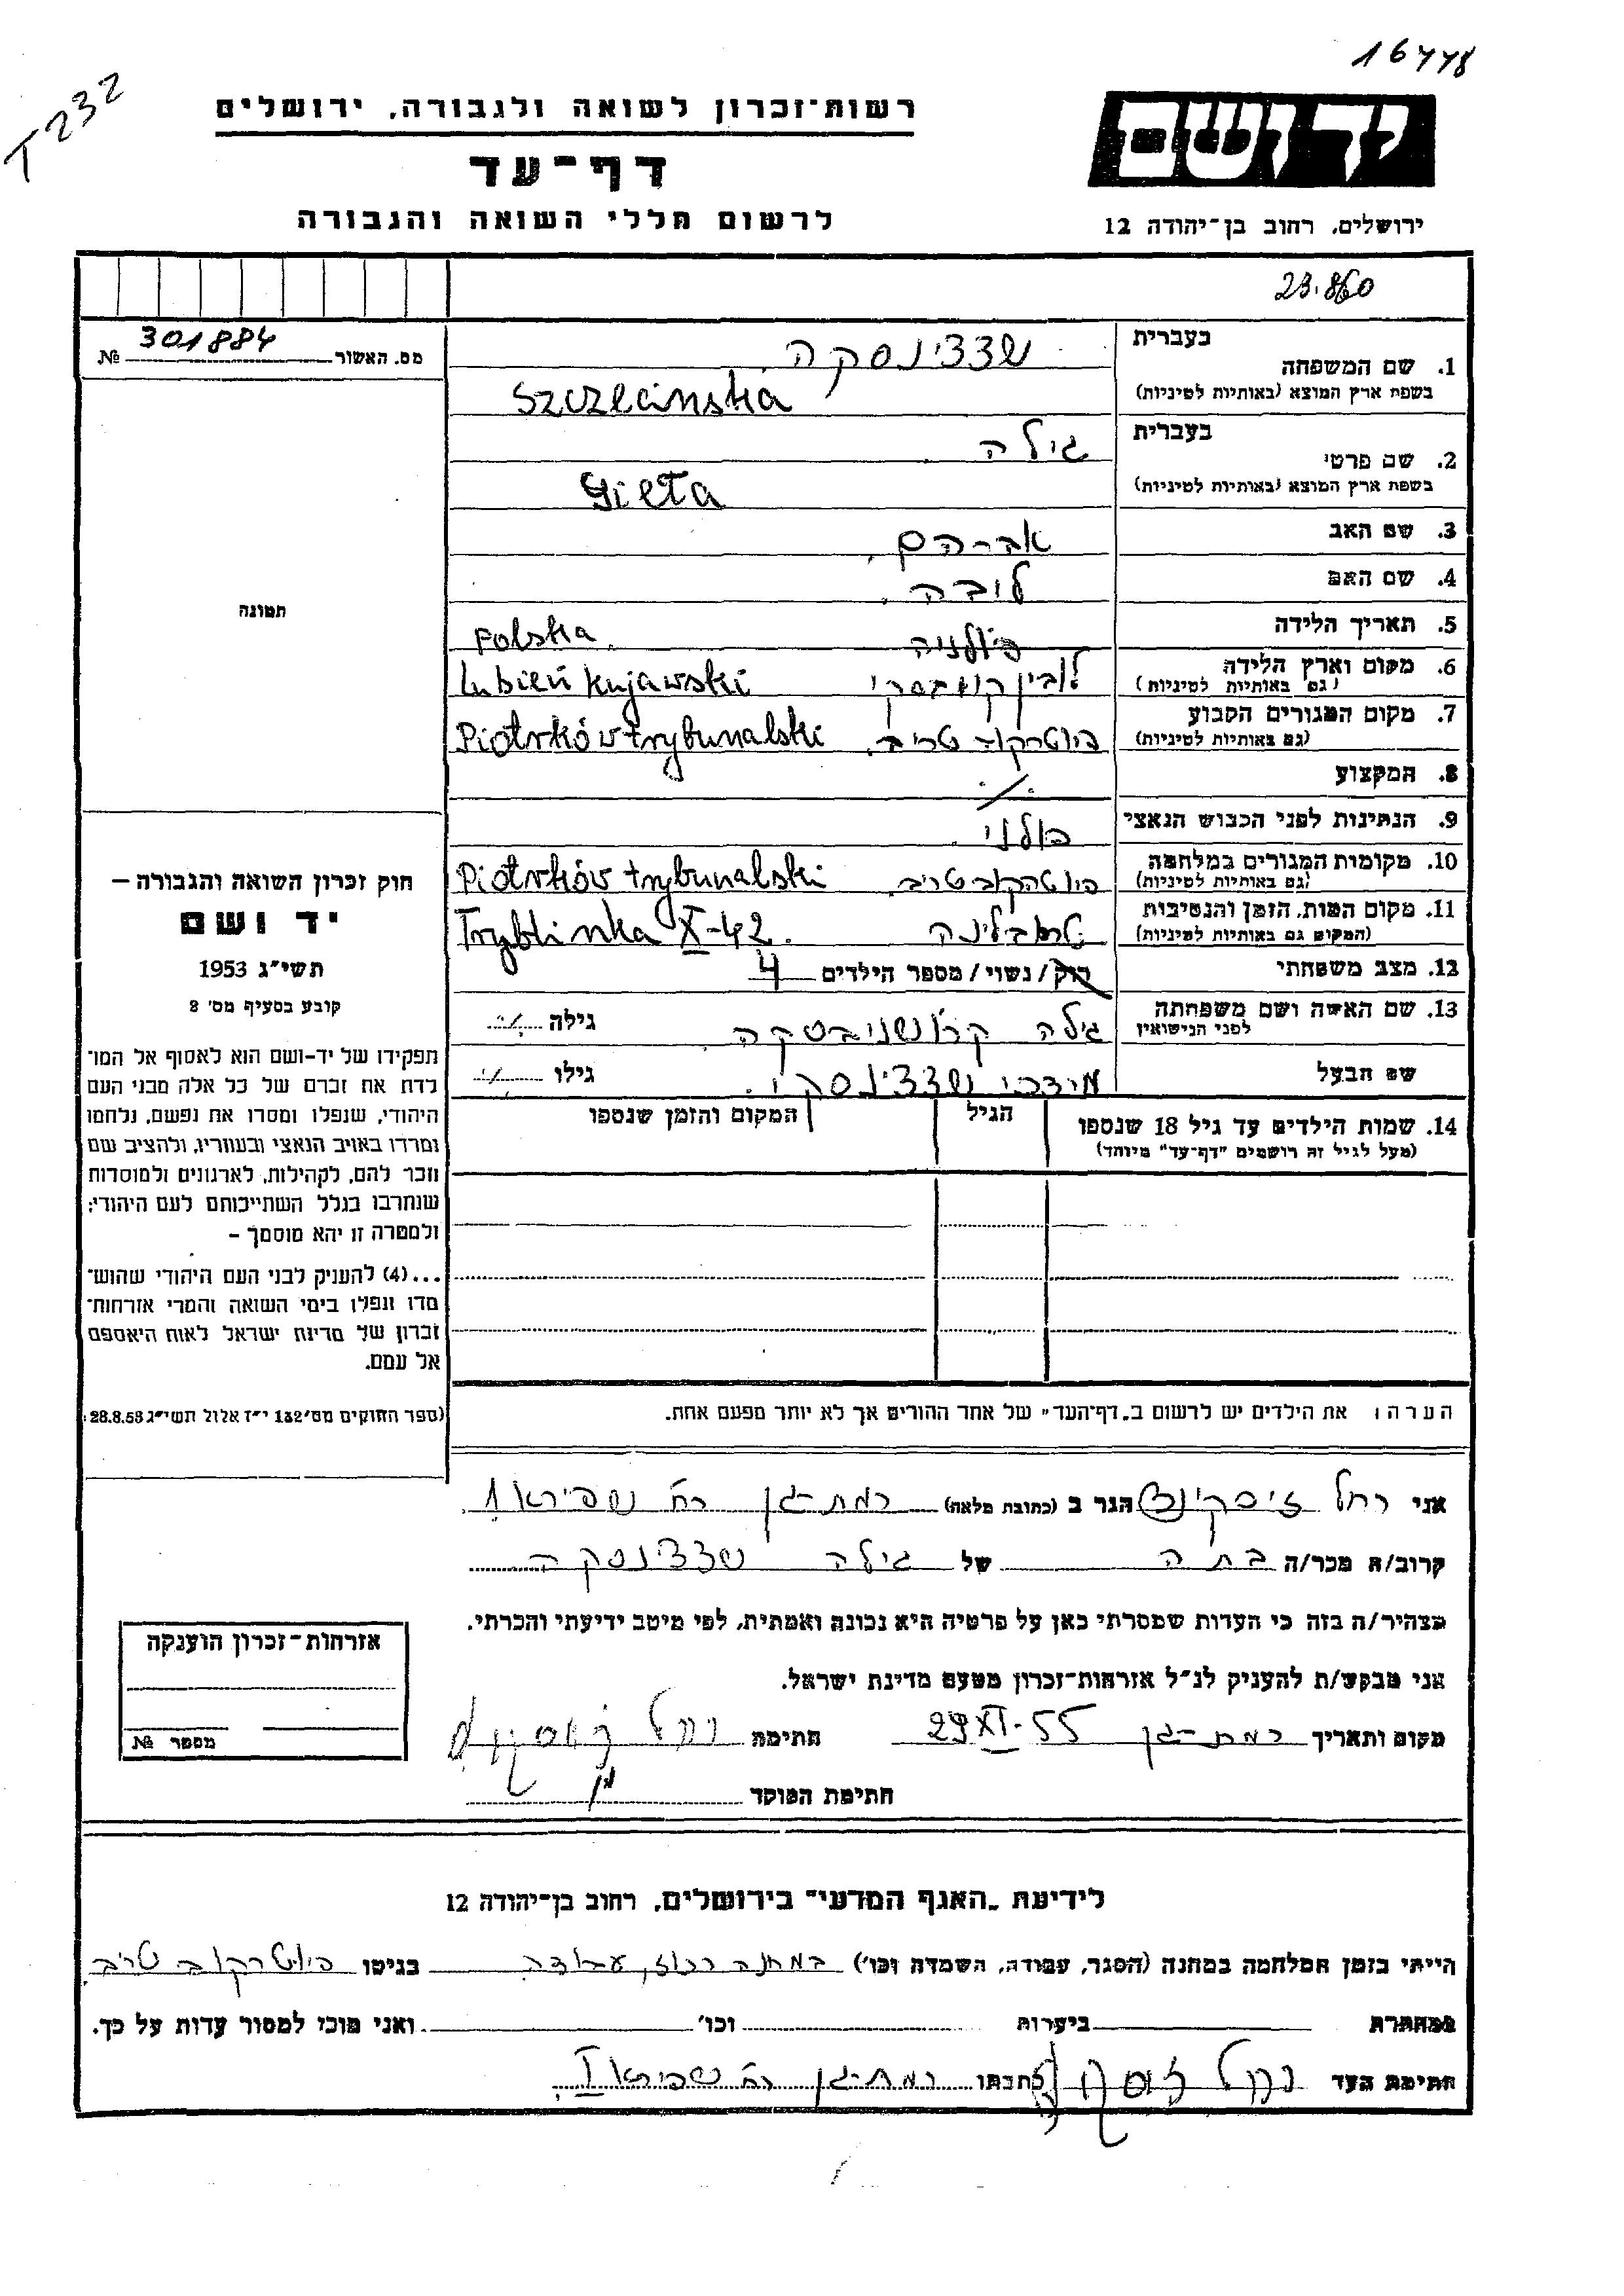 16448
T232
רשות־זכרון לשואה ולגבורה, ירושלים
ידושם
דף־עד
לרשום חללי השואה והגבורה
ירושלים, רחוב בן־יהודה 12
23.860
מס. האשור 301884 №
בעברית שצצינסקה
1. שם המשפחה
בשפת ארץ המוצא (באותיות לטיניות) Szczecinska
בעברית גילה
2. שם פרטי
בשפת ארץ המוצא (באותיות לטיניות) Gieta
3. שם האב אברהם
4. שם האם ליבה
תמונה
5. תאריך הלידה
פולניה Polska
6. מקום וארץ הלידה
(גם באותיות לטיניות) Lubień Kujawski
7. מקום המגורים הקבוע
(גם באותיות לטיניות) פיוטרקוב טריב. Piotrków trybunalski
8. המקצוע ./.
9. הנתינות לפני הכבוש הנאצי פולני
10. מקומות המגורים במלחמה
(גם באותיות לטיניות) פיוטרקוב טריב. Piotrków trybunalski
11. מקום המות, הזמן והנסיבות
(המקום גם באותיות לטיניות) טרבלינקה Tryblinka X-42.
12. מצב משפחתי רוק / נשוי / מספר הילדים 4
13. שם האשה ושם משפחתה
לפני הנישואין גילה גילה ./.
שם הבעל מרדכי שצצינסקי. גילו ./.
14. שמות הילדים עד גיל 18 שנספו הגיל המקום והזמן שנספו
(מעל לגיל זה רושמים "דף־עד" מיוחד)
חוק זכרון השואה והגבורה –
יד ושם
תשי"ג 1953
קובע בסעיף מס' 8
תפקידו של יד-ושם הוא לאסוף אל המו־
לדת את זכרם של כל אלה מבני העם
היהודי, שנפלו ומסרו את נפשם, נלחמו
ומרדו באויב הנאצי ובעוזריו, ולהציב שם
וזכר להם, לקהילות, לארגונים ולמוסדות
שנחרבו בגלל השתייכותם לעם היהודי;
ולמטרה זו יהא מוסמך –
...(4) להעניק לבני העם היהודי שהוש־
מדו ונפלו בימי השואה והמרי אזרחות־
זכרון של מדינת ישראל לאות היאספם
אל עמם.
(ספר החוקים מס' 132 י"ז אלול תשי"ג 28.8.53)
הערה: את הילדים יש לרשום ב„דף־העד" של אחד ההורים אך לא יותר מפעם אחת.
אני רחל הגר ב (כתובת מלאה) רמת-גן רח' שפירא 1
קרוב/ה מכר/ה בתה של גילה שצצינסקה
מצהיר/ה בזה כי העדות שמסרתי כאן על פרטיה היא נכונה ואמתית, לפי מיטב ידיעתי והכרתי.
אני מבקש/ת להעניק לנ"ל אזרחות־זכרון מטעם מדינת ישראל.
מקום ותאריך רמת-גן 29 XI-55 חתימה רחל
חתימת הפוקד
אזרחות־זכרון הוענקה
מספר №
לידיעת „האגף המדעי" בירושלים, רחוב בן־יהודה 12
הייתי בזמן המלחמה במחנה (הסגר, עבודה, השמדה וכו') במחנה רכוז, עבודה בגיטו פיוטרקוב טריב.
במחתרת ביערות וכו' ואני מוכן למסור עדות על כך.
חתימת העד רחל כתבתו רמת-גן רח' שפירא 1